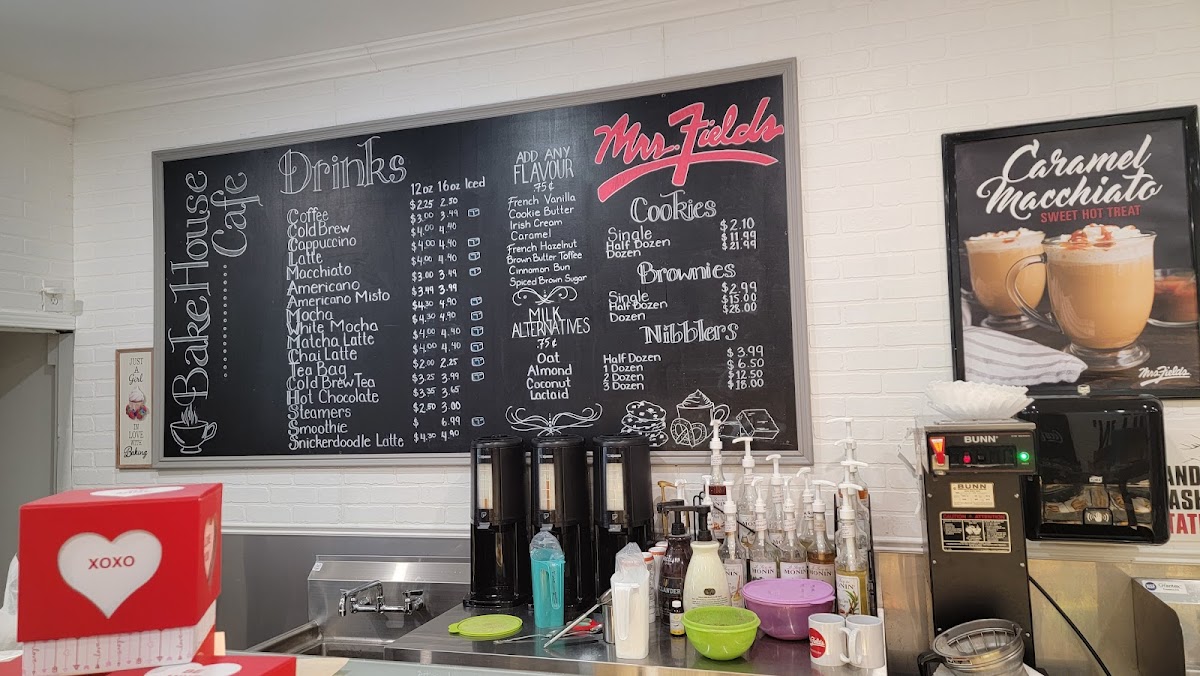 BakeHouse Cafe
Drinks
12oz 16oz Iced
Coffee $2.25 2.50
Cold Brew $3.00 3.49
Cappuccino $4.00 4.90
Latte $4.00 4.90
Macchiato $4.00 4.90
Americano $3.00 3.49
Americano Misto $3.49 3.99
Mocha $4.30 4.90
White Mocha $4.30 4.90
Matcha Latte $4.00 4.40
Chai Latte $4.00 4.40
Tea Bag $2.00 2.25
Cold Brew Tea $3.25 3.99
Hot Chocolate $3.35 3.65
Steamers $2.50 3.00
Smoothie $ 6.99
Snickerdoodle Latte $4.30 4.90
ADD ANY
FLAVOUR
.75¢
French Vanilla
Cookie Butter
Irish Cream
Caramel
French Hazelnut
Brown Butter Toffee
Cinnamon Bun
Spiced Brown Sugar
MILK
ALTERNATIVES
.75¢
Oat
Almond
Coconut
Lactaid
Mrs. Fields
Cookies
Single $2.10
Half Dozen $11.99
Dozen $21.99
Brownies
Single $2.99
Half Dozen $15.00
Dozen $28.00
Nibblers
Half Dozen $3.99
1 Dozen $6.50
2 Dozen $12.50
3 Dozen $18.00
Caramel
Macchiato
SWEET HOT TREAT
Mrs. Fields
JUST
A Girl
IN LOVE
WITH
Baking
XOXO
BUNN
BUNN
CAUTION ATTENTION
MONIN
MONIN
MONIN
MONIN